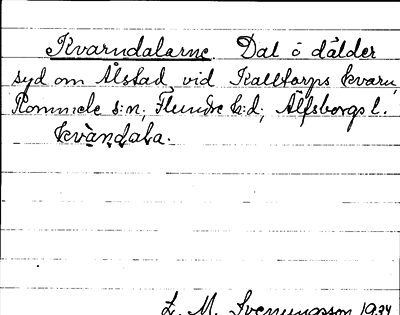 Kvarndalarne. Dal o dälder
syd om Ålstad vid Kalltorps kvarn,
Rommele s:n, Flundre h:d, Älfsborgs l.
kvàndala.
L. M. Svenungsson 1934